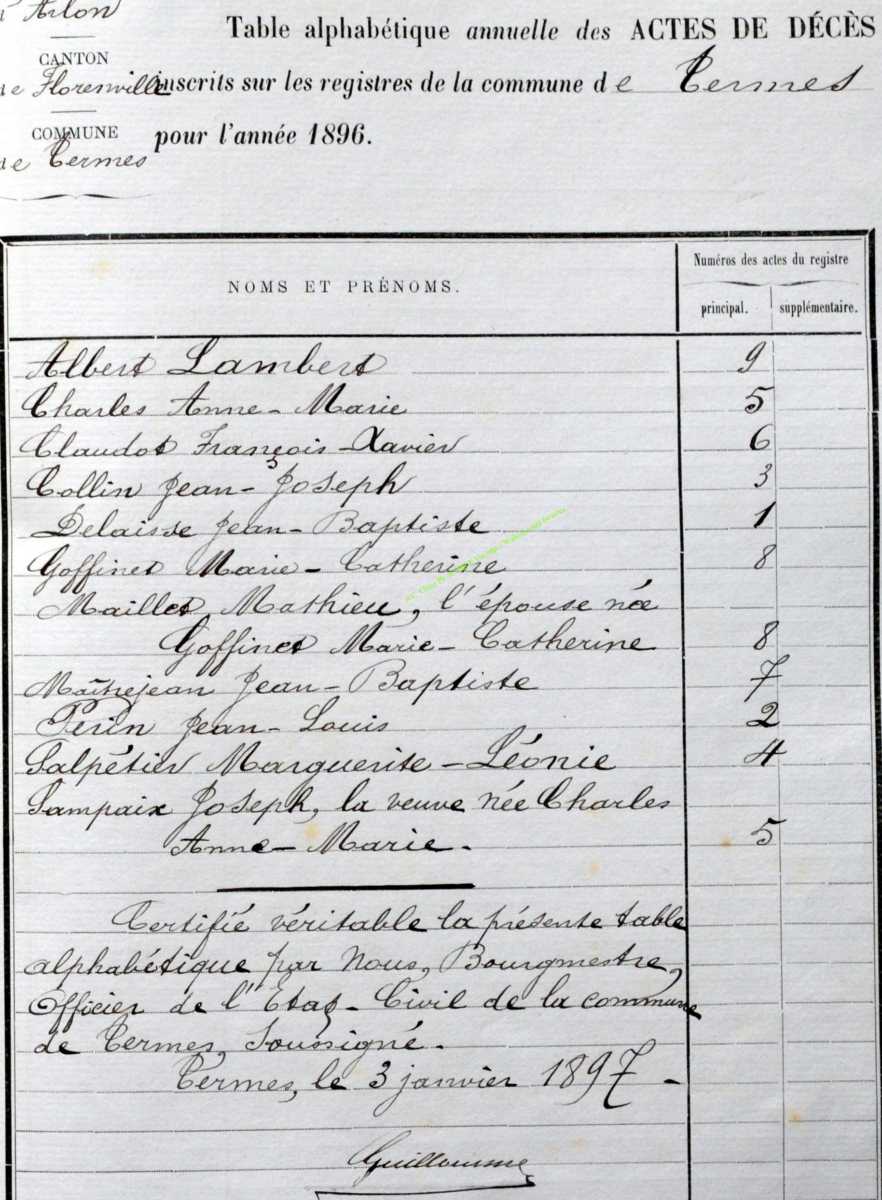 d'Arlon
CANTON
de Florenville
COMMUNE
de Termes
Table alphabétique annuelle des ACTES DE DÉCÈS
inscrits sur les registres de la commune de Termes
pour l'année 1896.
NOMS ET PRÉNOMS.
Numéros des actes du registre
principal. supplémentaire.
Albert Lambert 9
Charles Anne-Marie 5
Claudot François-Xavier 6
Collin Jean-Joseph 3
Delaisse Jean-Baptiste 1
Goffinet Marie-Catherine 8
Maillet, Mathieu, l'épouse née
Goffinet Marie-Catherine 8
Maîtrejean Jean-Baptiste 7
Perin Jean-Louis 2
Salpétier Marguerite-Léonie 4
Sampaix Joseph, la veuve née Charles
Anne-Marie. 5
Certifié véritable la présente table
alphabétique par Nous, Bourgmestre,
Officier de l'Etat-Civil de la commune
de Termes, Soussigné.
Termes, le 3 janvier 1897 -
Guillaume